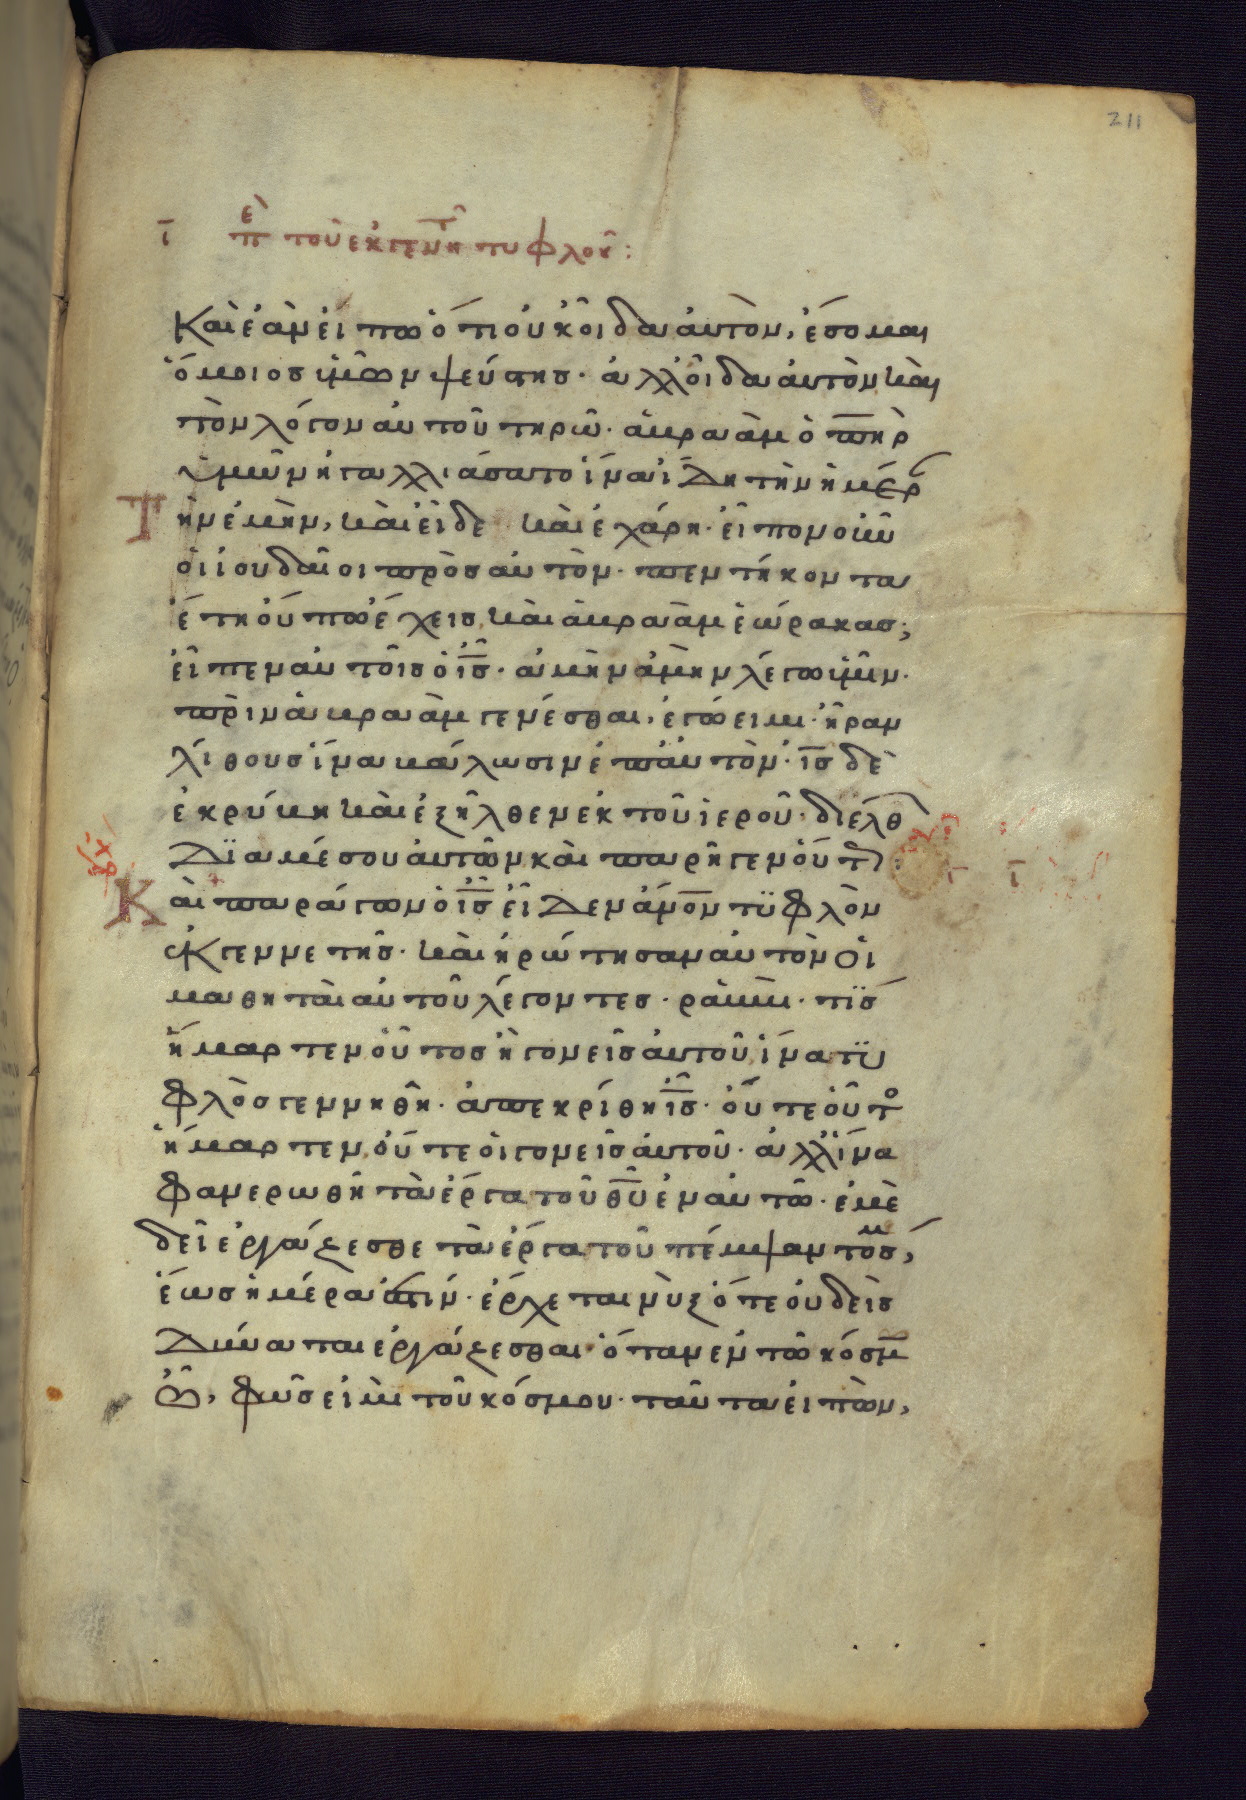 211
ι̅ πὲ τοῦ ἐκ γενετῆ τυφλοῦ:
Καὶ ἐὰν εἴπω ὅτι οὐκ οἶδα αὐτὸν, ἔσομαι
ὅμοιος ὑμῶν ψεύστης· ἀλλ' οἶδα αὐτὸν καὶ
τὸν λόγον αὐτοῦ τηρῶ· ἀβραὰμ ὁ πη̅ρ
ὑμῶν ἠγαλλιάσατο ἵνα ἴδη τὴν ἡμέρ
τὴν ἐμὴν, καὶ εἶδε καὶ ἐχάρη· εἶπον οὖν
οἱ ἰουδαῖοι πρὸς αὐτὸν· πεντήκοντα
ἔτη οὔπω ἔχεις, καὶ ἀβραὰμ ἑώρακας;
εἶπεν αὐτοῖς ὁ ι̅ς̅· ἀμὴν ἀμὴν λέγω ὑμῖν·
πρὶν ἀβραὰμ γενέσθαι, ἐγώ εἰμι· ἦραν
λίθους ἵνα βάλωσιν ἐπ' αὐτὸν· ι̅ς̅ δὲ
ἐκρύβη καὶ ἐξῆλθεν ἐκ τοῦ ἱεροῦ· διελθ
διὰ μέσου αὐτῶν καὶ παρῆγεν οὕτ
ι̅
Καὶ παράγων ὁ ι̅ς̅ εἶδεν ἄνο̅ν τυφλὸν
ἐκ γεννετῆς· καὶ ἠρώτησαν αὐτὸν οἱ
μαθηταὶ αὐτοῦ λέγοντες· ραββὶ· τίς
ἥμαρτεν οὗτος ἢ γονεῖς αὐτοῦ, ἵνα τυ
φλὸς γεννηθῆ· ἀπεκρίθη ι̅ς̅· οὔτε οὗτο
ἥμαρτεν, οὔτε οἱ γονεῖς αὐτοῦ· ἀλλ' ἵνα
φανερωθῆ τὰ ἔργα τοῦ θ̅υ̅ ἐν αὐτῶ· ἐμὲ
δεῖ ἐργάζεσθε τὰ ἔργα τοῦ πέμψαντόσμ,
ἕως ἡμέρα ἐστίν· ἔρχεται νὺξ ὅτε οὐδεὶς
δύναται ἐργάζεσθαι· ὅταν ἐν τῶ κόσμ
ὦ, φῶς εἰμὶ τοῦ κόσμου· ταῦτα εἰπὼν,